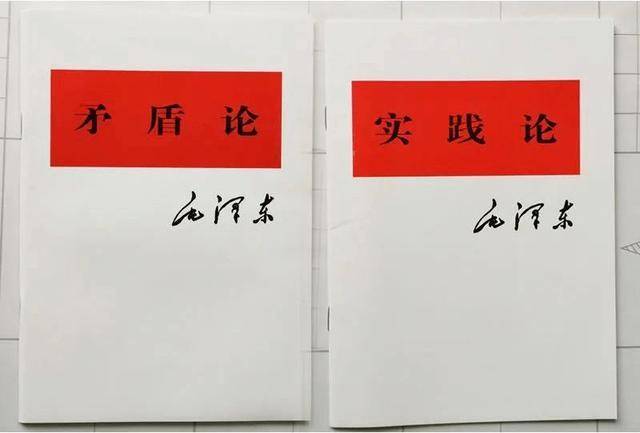 矛盾论
毛泽东
实践论
毛泽东